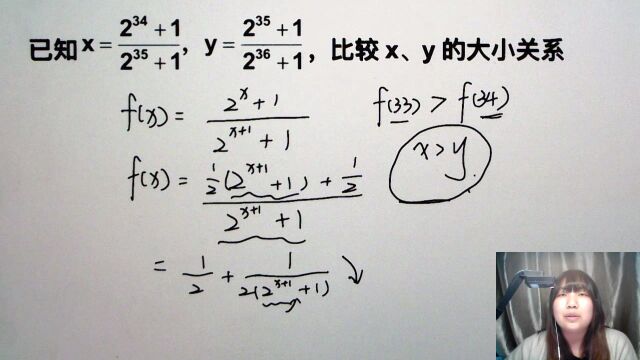 已知 x = (2^34 + 1)/(2^35 + 1), y = (2^35 + 1)/(2^36 + 1), 比较 x、y 的大小关系
f(x) = (2^x + 1)/(2^(x+1) + 1)
f(33) > f(34)
x > y
f(x) = (1/2(2^(x+1) + 1) + 1/2)/(2^(x+1) + 1)
= 1/2 + 1/(2(2^(x+1) + 1)) ↘